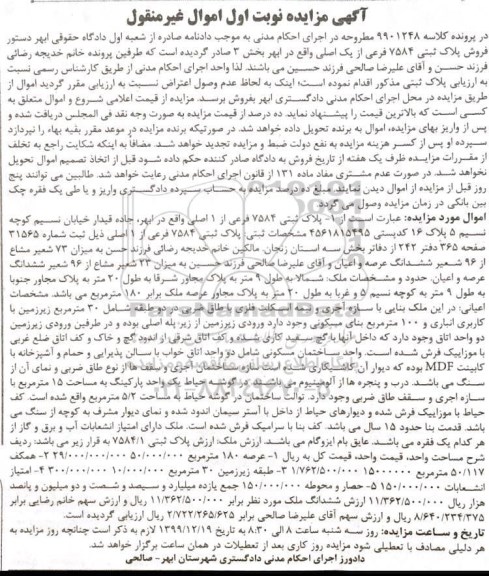 آگهی مزایده نوبت اول اموال غیرمنقول
در پرونده کلاسه 9901248 مطروحه در اجرای احکام مدنی به موجب دادنامه صادره از شعبه اول دادگاه حقوقی ابهر دستور
فروش پلاک ثبتی 7584 فرعی از یک اصلی واقع در ابهر بخش 3 صادر گردیده است که طرفین پرونده خانم خدیجه رضائی
فرزند حسن و آقای علیرضا صالحی فرزند حسین می باشند. لذا واحد اجرای احکام مدنی از طریق کارشناس رسمی نسبت
به ارزیابی پلاک ثبتی مذکور اقدام نموده است؛ اینک به لحاظ عدم وصول اعتراض نسبت به ارزیابی مقرر گردید اموال از
طریق مزایده در محل اجرای احکام مدنی دادگستری ابهر بفروش برسد. مزایده از قیمت اعلامی شروع و اموال متعلق به
کسی است که بالاترین قیمت را پیشنهاد نماید. ده درصد از قیمت مزایده به صورت وجه نقد فی المجلس دریافت شده و
پس از واریز بهای مزایده، اموال به برنده تحویل داده خواهد شد. در صورتیکه برنده مزایده در موعد مقرر بقیه بهاء را نپردازد
سپرده او پس از کسر هزینه مزایده به نفع دولت ضبط و مزایده تجدید خواهد شد. مضافاً به اینکه شکایت راجع به تخلف
از مقررات مزایده ظرف یک هفته از تاریخ فروش به دادگاه صادر کننده حکم داده شود قبل از اتخاذ تصمیم اموال تحویل
نخواهد شد. در صورت عدم مشتری مفاد ماده 131 از قانون اجرای احکام مدنی رعایت خواهد شد. طالبین می توانند پنج
روز قبل از مزایده از اموال دیدن نمایند مبلغ ده درصد مزایده به حساب سپرده دادگستری واریز و یا طی یک فقره چک
بین بانکی در زمان مزایده وصول می گردد.
اموال مورد مزایده: عبارت است از 1- پلاک ثبتی 7584 فرعی از 1 اصلی واقع در ابهر، جاده قیدار خیابان نسیم کوچه
نسیم 5 پلاک 16 کدپستی 4561815395 مشخصات ثبتی پلاک ثبتی 7584 فرعی از 1 اصلی ذیل ثبت شماره 31565
صفحه 365 دفتر 242 از دفاتر بخش سه استان زنجان، مالکین خانم خدیجه رضائی فرزند حسن به میزان 73 شعیر مشاع
از 96 شعیر ششدانگ عرصه و اعیان و آقای علیرضا صالحی فرزند حسین به میزان 23 شعیر مشاع از 96 شعیر ششدانگ
عرصه و اعیان. حدود و مشخصات ملک: شمالا به طول 9 متر به پلاک مجاور شرقا به طول 20 متر به پلاک مجاور جنوبا
به طول 9 متر به کوچه نسیم 5 و غربا به طول 20 متر به پلاک مجاور عرصه ملک برابر 180 مترمربع می باشد. مشخصات
اعیانی: در این ملک بنایی با سازه آجری و طاق ضربی در دو طبقه شامل 30 مترمربع زیرزمین با
کاربری انباری و 100 مترمربع بنای مسکونی وجود دارد ورودی زیرزمین از زیر پله اصلی بوده و در طرفین ورودی زیرزمین
دو واحد اتاق وجود دارد که داخل آنها با گچ سفید کاری شده و کف اتاق شرقی از اندود گچ و خاک و کف اتاق ضلع غربی
با موزاییک فرش شده است. واحد ساختمان مسکونی شامل دو واحد اتاق خواب با سالن پذیرایی و حمام و آشپزخانه با
کابینت MDF بوده که دیوار آن کاشیکاری شده است سازه ساختمان آجری و سقف ها از نوع طاق ضربی و نمای آن از
سنگ می باشد. درب و پنجره ها از آلومینیوم می باشند. در گوشه حیاط یک واحد پارکینگ به مساحت 15 مترمربع با
سازه اجری و سقف طاق ضربی وجود دارد. توالت ساختمان در گوشه حیاط به مساحت 5/2 مترمربع واقع شده است. کف
حیاط با موزاییک فرش شده و دیوارهای حیاط از داخل با آستر سیمان اندود شده و نمای دیوار مشرف به کوچه از سنگ می
باشد. قدمت بنا حدود 15 سال می باشد. کف بنا با سرامیک فرش شده است. ملک دارای امتیاز انشعابات آب و برق و گاز از
هر کدام یک فقره می باشند. عایق بام ایزوگام می باشد. ارزش ملک: ارزش پلاک ثبتی 7584/1 به قرار زیر می باشد: ردیف
شرح مساحت واحد، قیمت واحد، قیمت کل به ریال 1- عرصه 180 مترمربع 50/000/000 29/000/000/000 2- همکف
50/117 مترمربع 15000000 1/762/500/000 3- طبقه زیرزمین 30 مترمربع 10/000/000 300/000/000 4- امتیاز
انشعابات 150/000/000 5- حصار و محوطه 150/000/000 جمع یازده میلیارد و سیصد و شصت و دو میلیون و پانصد
هزار ریال 11/362/500/000 ارزش ششدانگ ملک مورد نظر برابر 11/362/500/000 ریال و ارزش سهم خانم رضایی برابر
8/640/234/375 ریال و ارزش سهم آقای علیرضا صالحی برابر 2/722/265/625 ریال ارزیابی گردیده است.
تاریخ و ساعت مزایده: روز سه شنبه ساعت 8 الی 8:30 به تاریخ 1399/12/19 لازم به ذکر است چنانچه روز مزایده به
هر دلیلی مصادف با تعطیلی شود مزایده روز کاری بعد از تعطیلات در همان ساعت برگزار خواهد شد.
دادورز اجرای احکام مدنی دادگستری شهرستان ابهر- صالحی